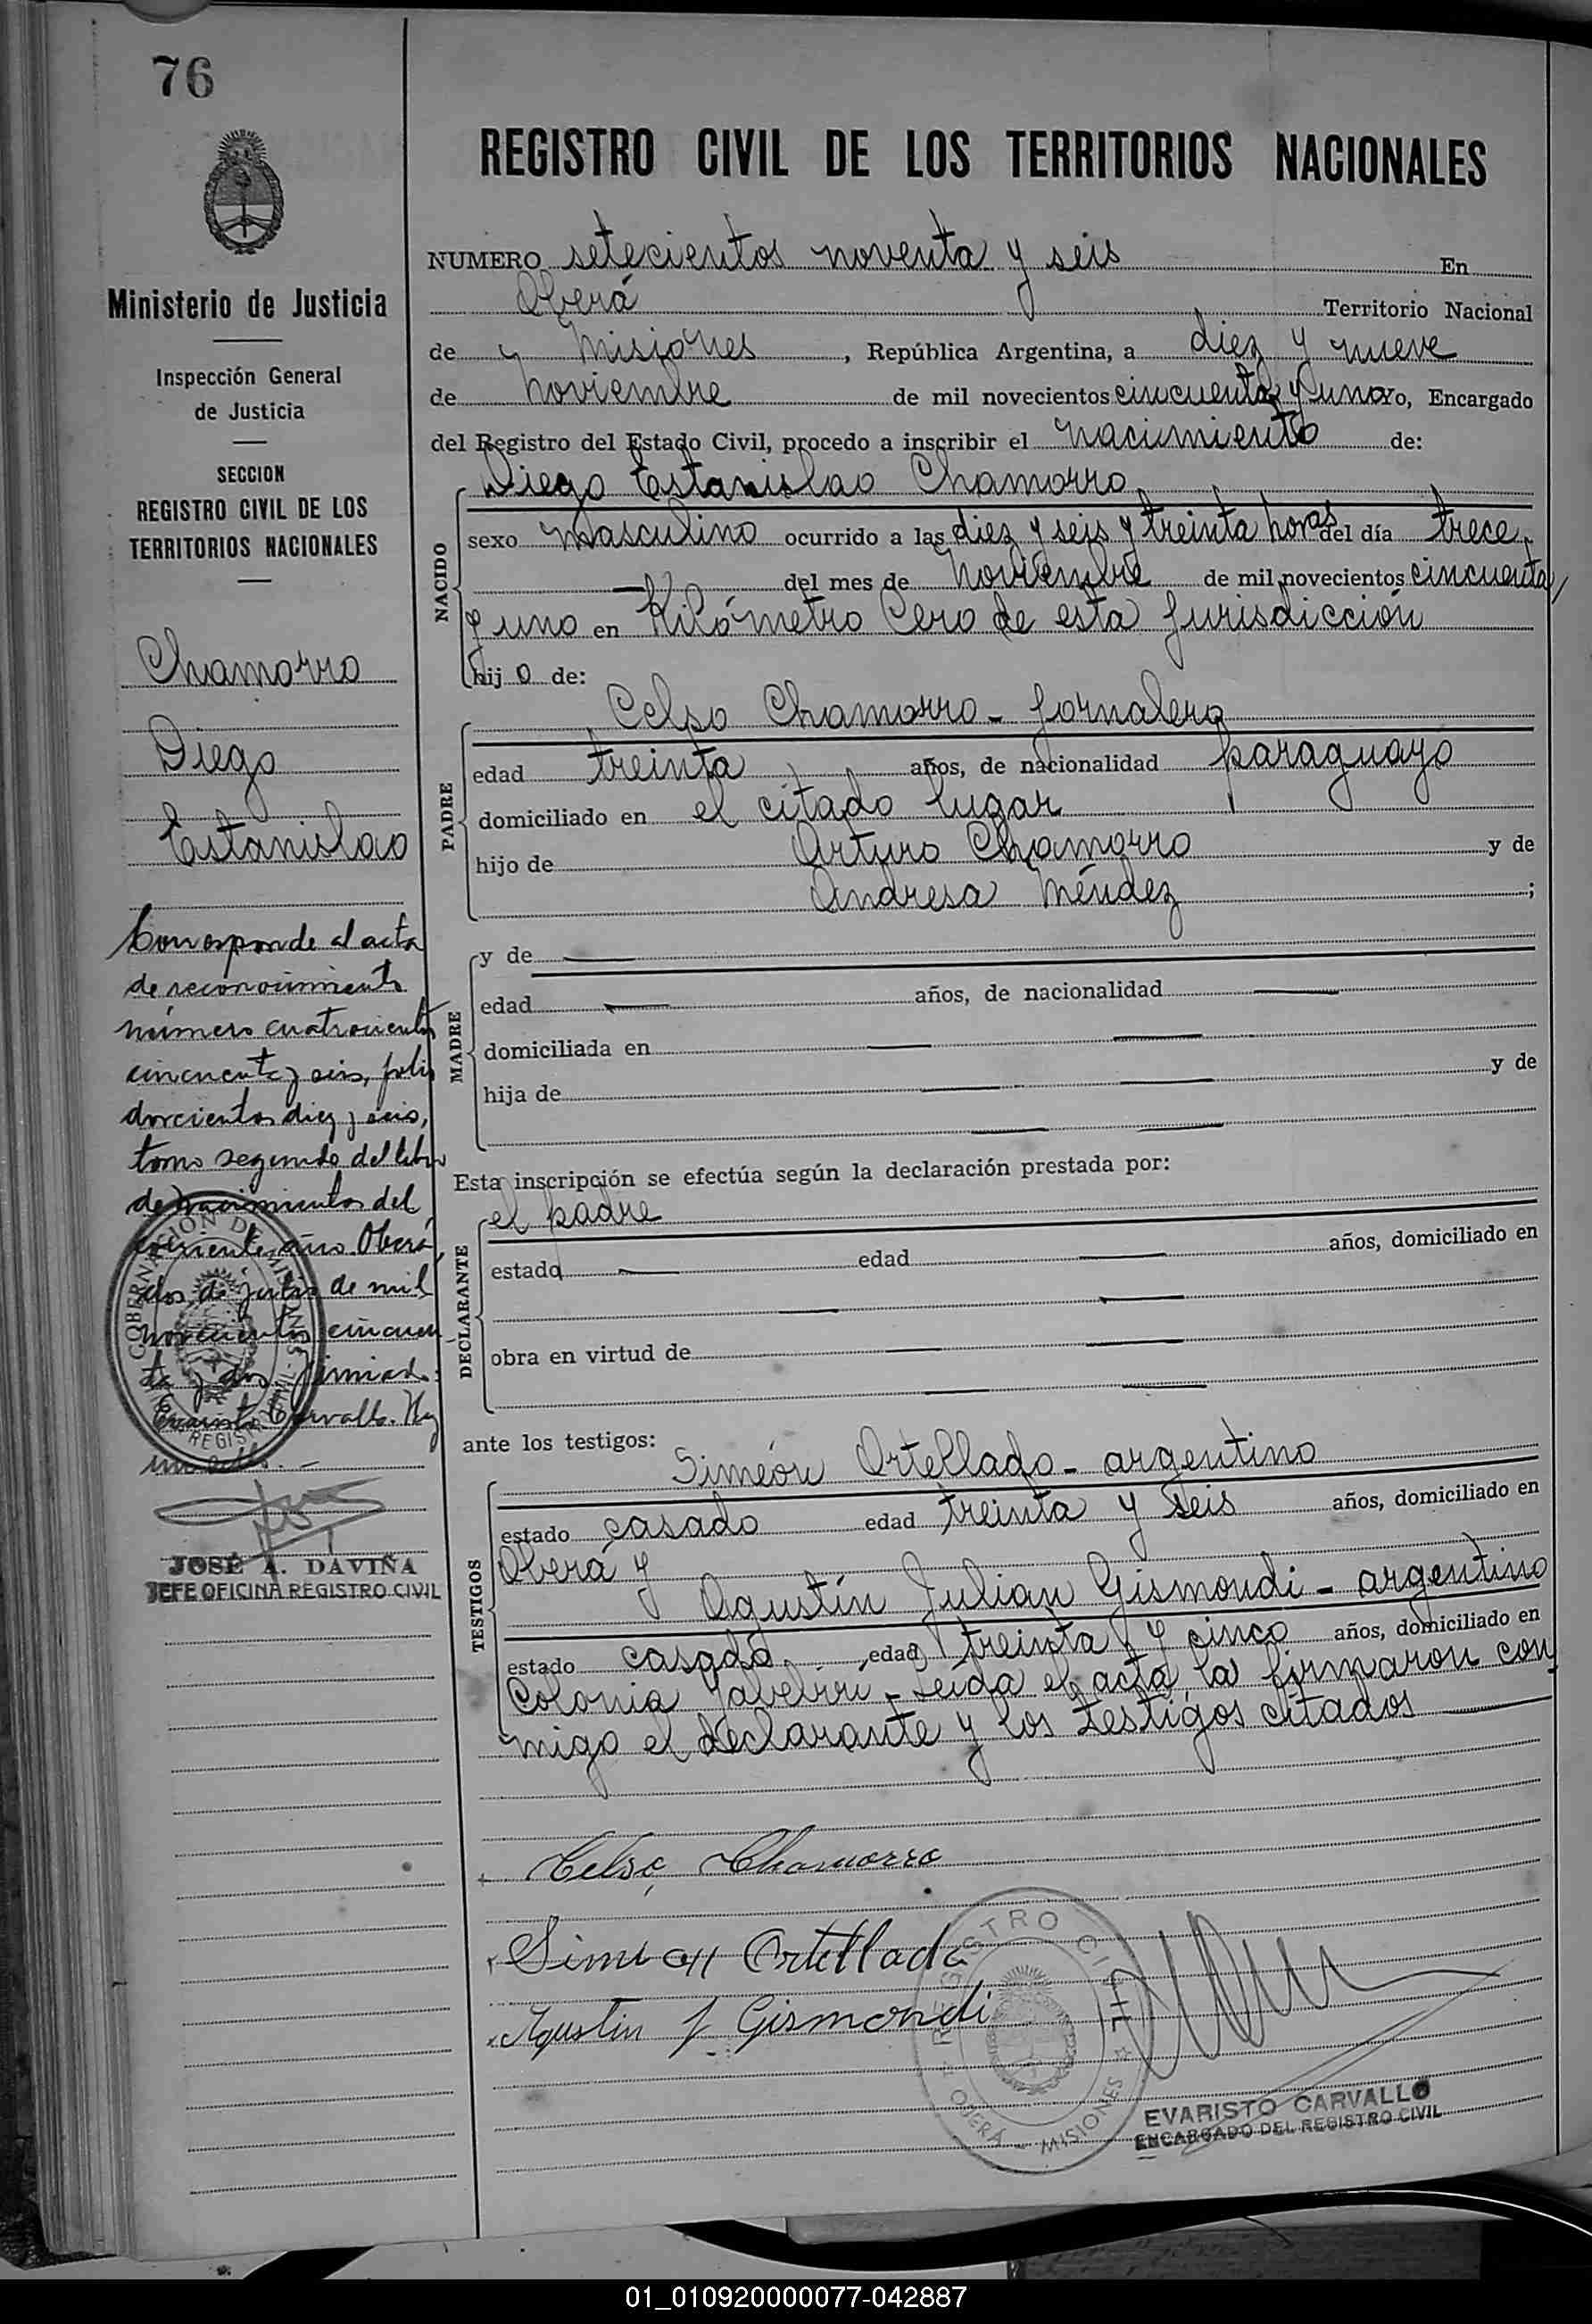 76
Ministerio de Justicia
Inspección General
de Justicia
SECCION
REGISTRO CIVIL DE LOS
TERRITORIOS NACIONALES
Chamorro
Diego
Estanislao
Corresponde al acta
de reconocimiento
número cuatrocientos
cincuenta y seis, folio
doscientos diez y seis,
tomo segundo del libro
de nacimientos del
corriente año. Oberá,
dos de julio de mil
novecientos cincuen
ta y dos. Firmado:
Evaristo Carvallo. Hay
un sello.-
GOBERNACION DE MISIONES
REGISTRO CIVIL
JOSÉ A. DAVIÑA
JEFE OFICINA REGISTRO CIVIL
REGISTRO CIVIL DE LOS TERRITORIOS NACIONALES
NUMERO setecientos noventa y seis En
Oberá Territorio Nacional
de Misiones, República Argentina, a diez y nueve
de noviembre de mil novecientos cincuenta y uno Yo, Encargado
del Registro del Estado Civil, procedo a inscribir el nacimiento de:
Diego Estanislao Chamorro
NACIDO
sexo masculino ocurrido a las diez y seis y treinta horas del día trece
del mes de noviembre de mil novecientos cincuenta
y uno en Kilómetro Cero de esta jurisdicción
hijo de:
PADRE
Celso Chamorro - jornalero
edad treinta años, de nacionalidad paraguayo
domiciliado en el citado lugar
hijo de Arturo Chamorro y de
Andresa Méndez ;
MADRE
y de
edad años, de nacionalidad
domiciliada en
hija de y de
Esta inscripción se efectúa según la declaración prestada por:
DECLARANTE
el padre
estado edad años, domiciliado en
obra en virtud de
ante los testigos:
TESTIGOS
Simeón Ortellado - argentino
estado casado edad treinta y seis años, domiciliado en
Oberá y
Agustín Julian Gismondi - argentino
estado casado edad treinta y cinco años, domiciliado en
Colonia Yabebirí - Leída el acta, la firmaron con
migo el declarante y los testigos citados
Celso Chamorro
Simeon Ortellado
Agustin J. Gismondi
REGISTRO CIVIL
OBERÁ - MISIONES
EVARISTO CARVALLO
ENCARGADO DEL REGISTRO CIVIL
01_010920000077-042887